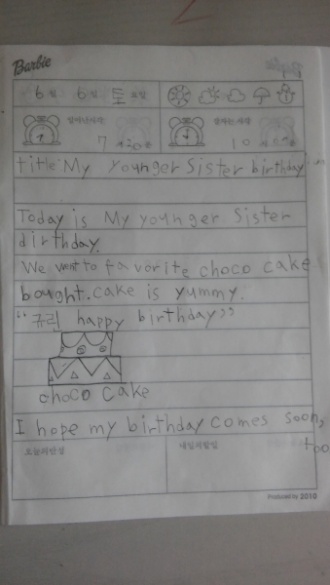 Barbie
6월 6일 토요일
일어난시각 잠자는시각
7 시 30 분 10 시
title: My younger Sister birthday
Today is My younger Sister
dirthday.
We went to favorite choco cake
bought. cake is yummy.
"규리 happy birthday"
choco cake
I hope my birthday comes soon,
too
오늘의반성 내일의할일
Produced by 2010